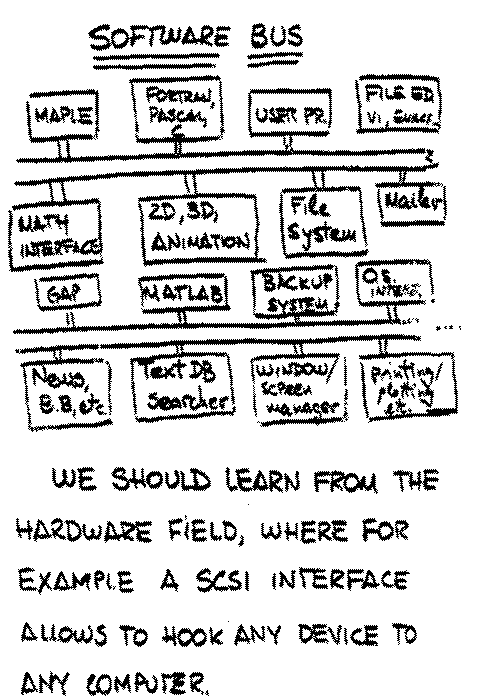 SOFTWARE BUS
MAPLE
FORTRAN,
PASCAL,
C
USER PR.
FILE ED
VI, EMACS.
MATH
INTERFACE
2D, 3D,
ANIMATION
File
System
Mailer
GAP
MATLAB
BACKUP
SYSTEM.
O.S.
INTERF.
News,
B.B, etc
Text DB
Searcher
WINDOW/
SCREEN
manager
printing/
plotting
etc.
WE SHOULD LEARN FROM THE
HARDWARE FIELD, WHERE FOR
EXAMPLE A SCSI INTERFACE
ALLOWS TO HOOK ANY DEVICE TO
ANY COMPUTER.